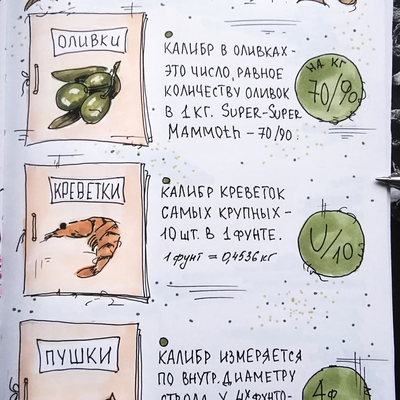 ОЛИВКИ
КАЛИБР В ОЛИВКАХ -
ЭТО ЧИСЛО, РАВНОЕ
КОЛИЧЕСТВУ ОЛИВОК
В 1 КГ. SUPER-SUPER
MAMMOTH - 70/90.
НА КГ
70/90
КРЕВЕТКИ
КАЛИБР КРЕВЕТОК
САМЫХ КРУПНЫХ -
10 ШТ. В 1 ФУНТЕ.
1 фунт = 0,4536 кг
U/10
ПУШКИ
КАЛИБР ИЗМЕРЯЕТСЯ
ПО ВНУТР. ДИАМЕТРУ
СТВОЛА. У 4Х ФУНТО-
4Ф